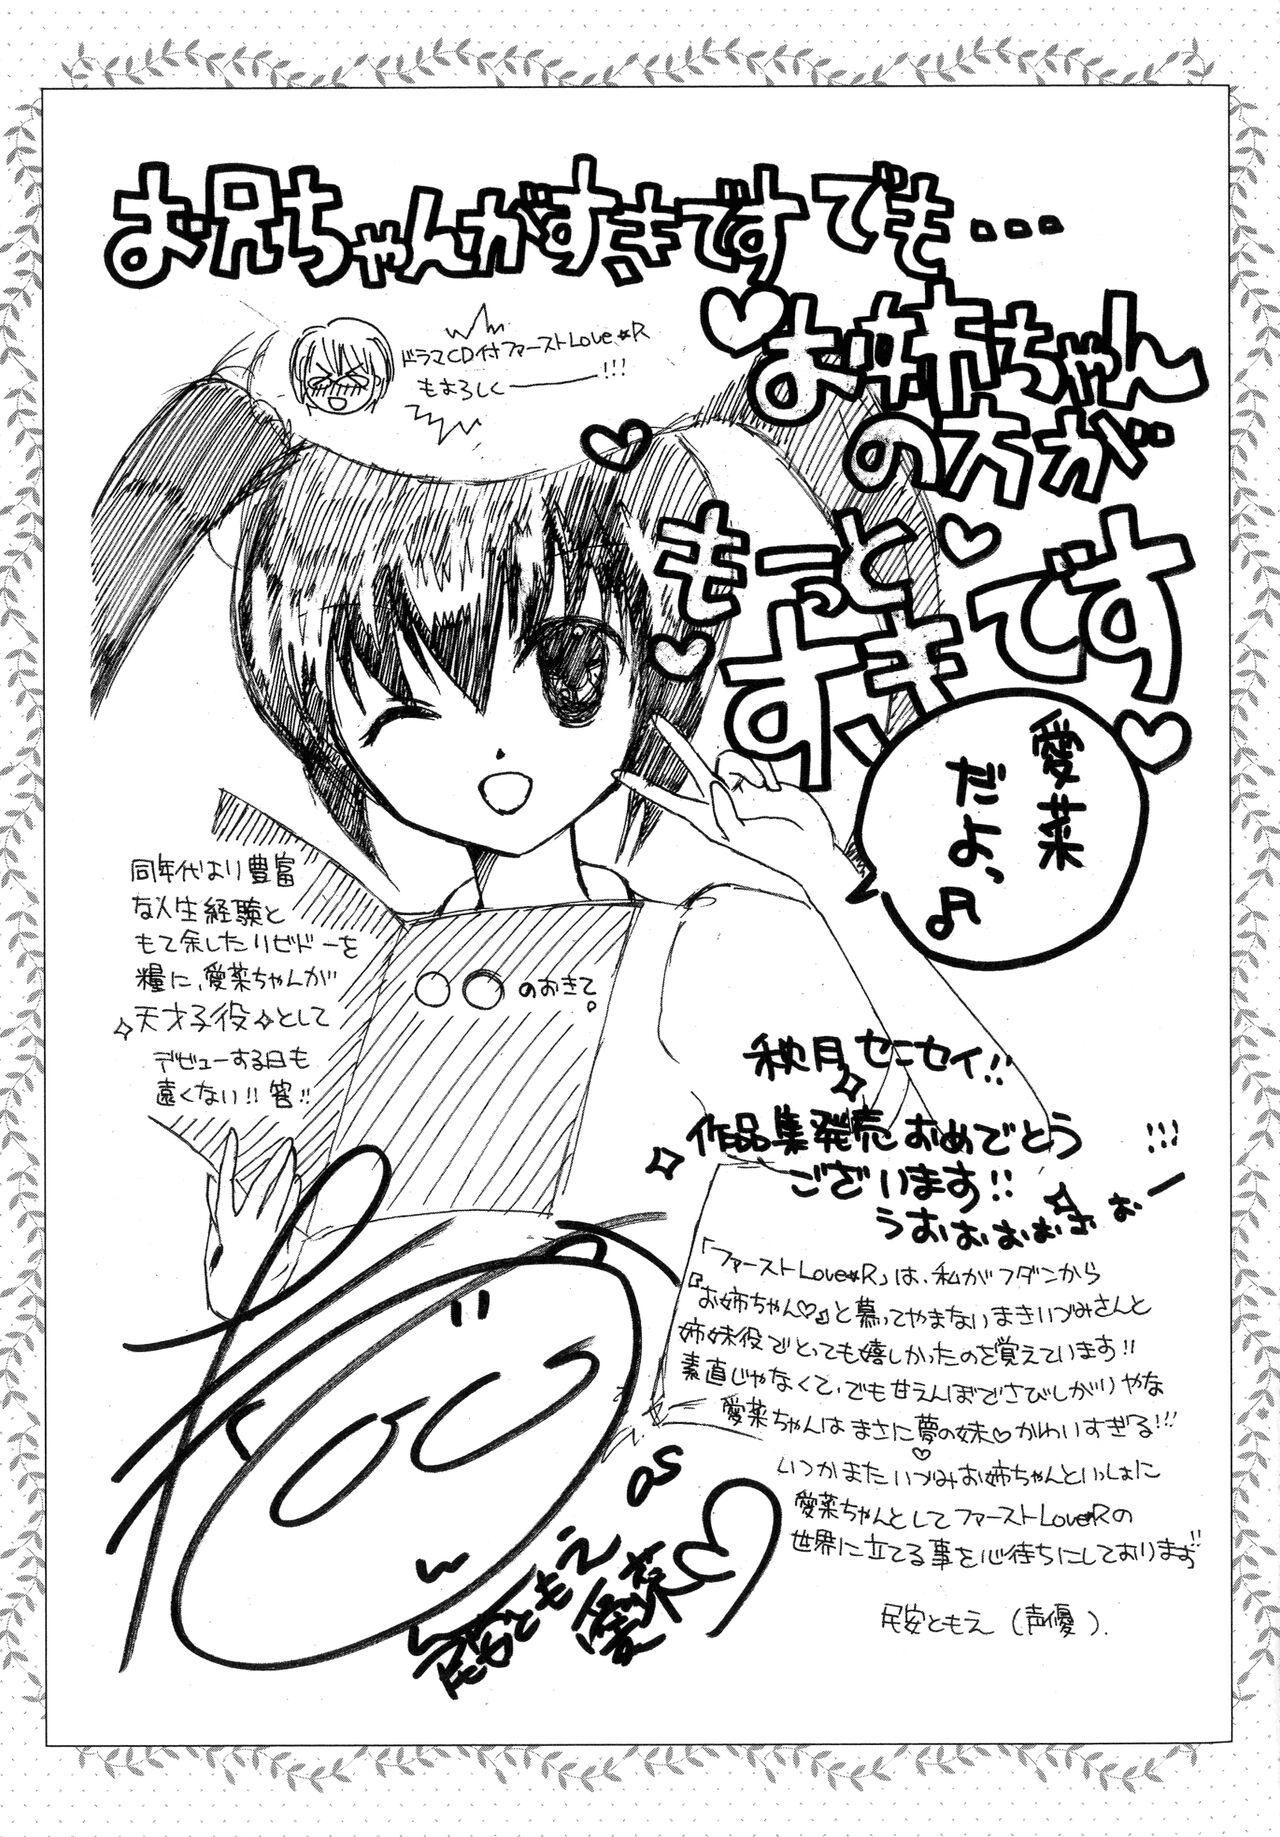 お兄ちゃんがすきですでも・・・
お姉ちゃん
の方が
もーっと
すきです
ドラマCD付ファーストLove★R
もよろしく――!!!
愛菜
だよっ♪
同年代より豊富
な人生経験と
もて余したリビドーを
糧に、愛菜ちゃんが
天才子役として
デビューする日も
遠くない!!筈!!
○○のおきて。
秋月センセイ!!
作品集発売おめでとう
ございます!!
うおぉぉぉぉぉー!!!
「ファーストLove★R」は、私がフダンから
『お姉ちゃん♡』と慕ってやまないまきいづみさんと
姉妹役でとっても嬉しかったのを覚えています!!
素直じゃなくて、でも甘えんぼでさびしがりやな
愛菜ちゃんはまさに夢の妹♡かわいすぎる!!!
いつかまたいづみお姉ちゃんといっしょに
愛菜ちゃんとしてファーストLove★Rの
世界に立てる事を心待ちにしております!!
as
民安ともえ
愛菜
民安ともえ(声優).